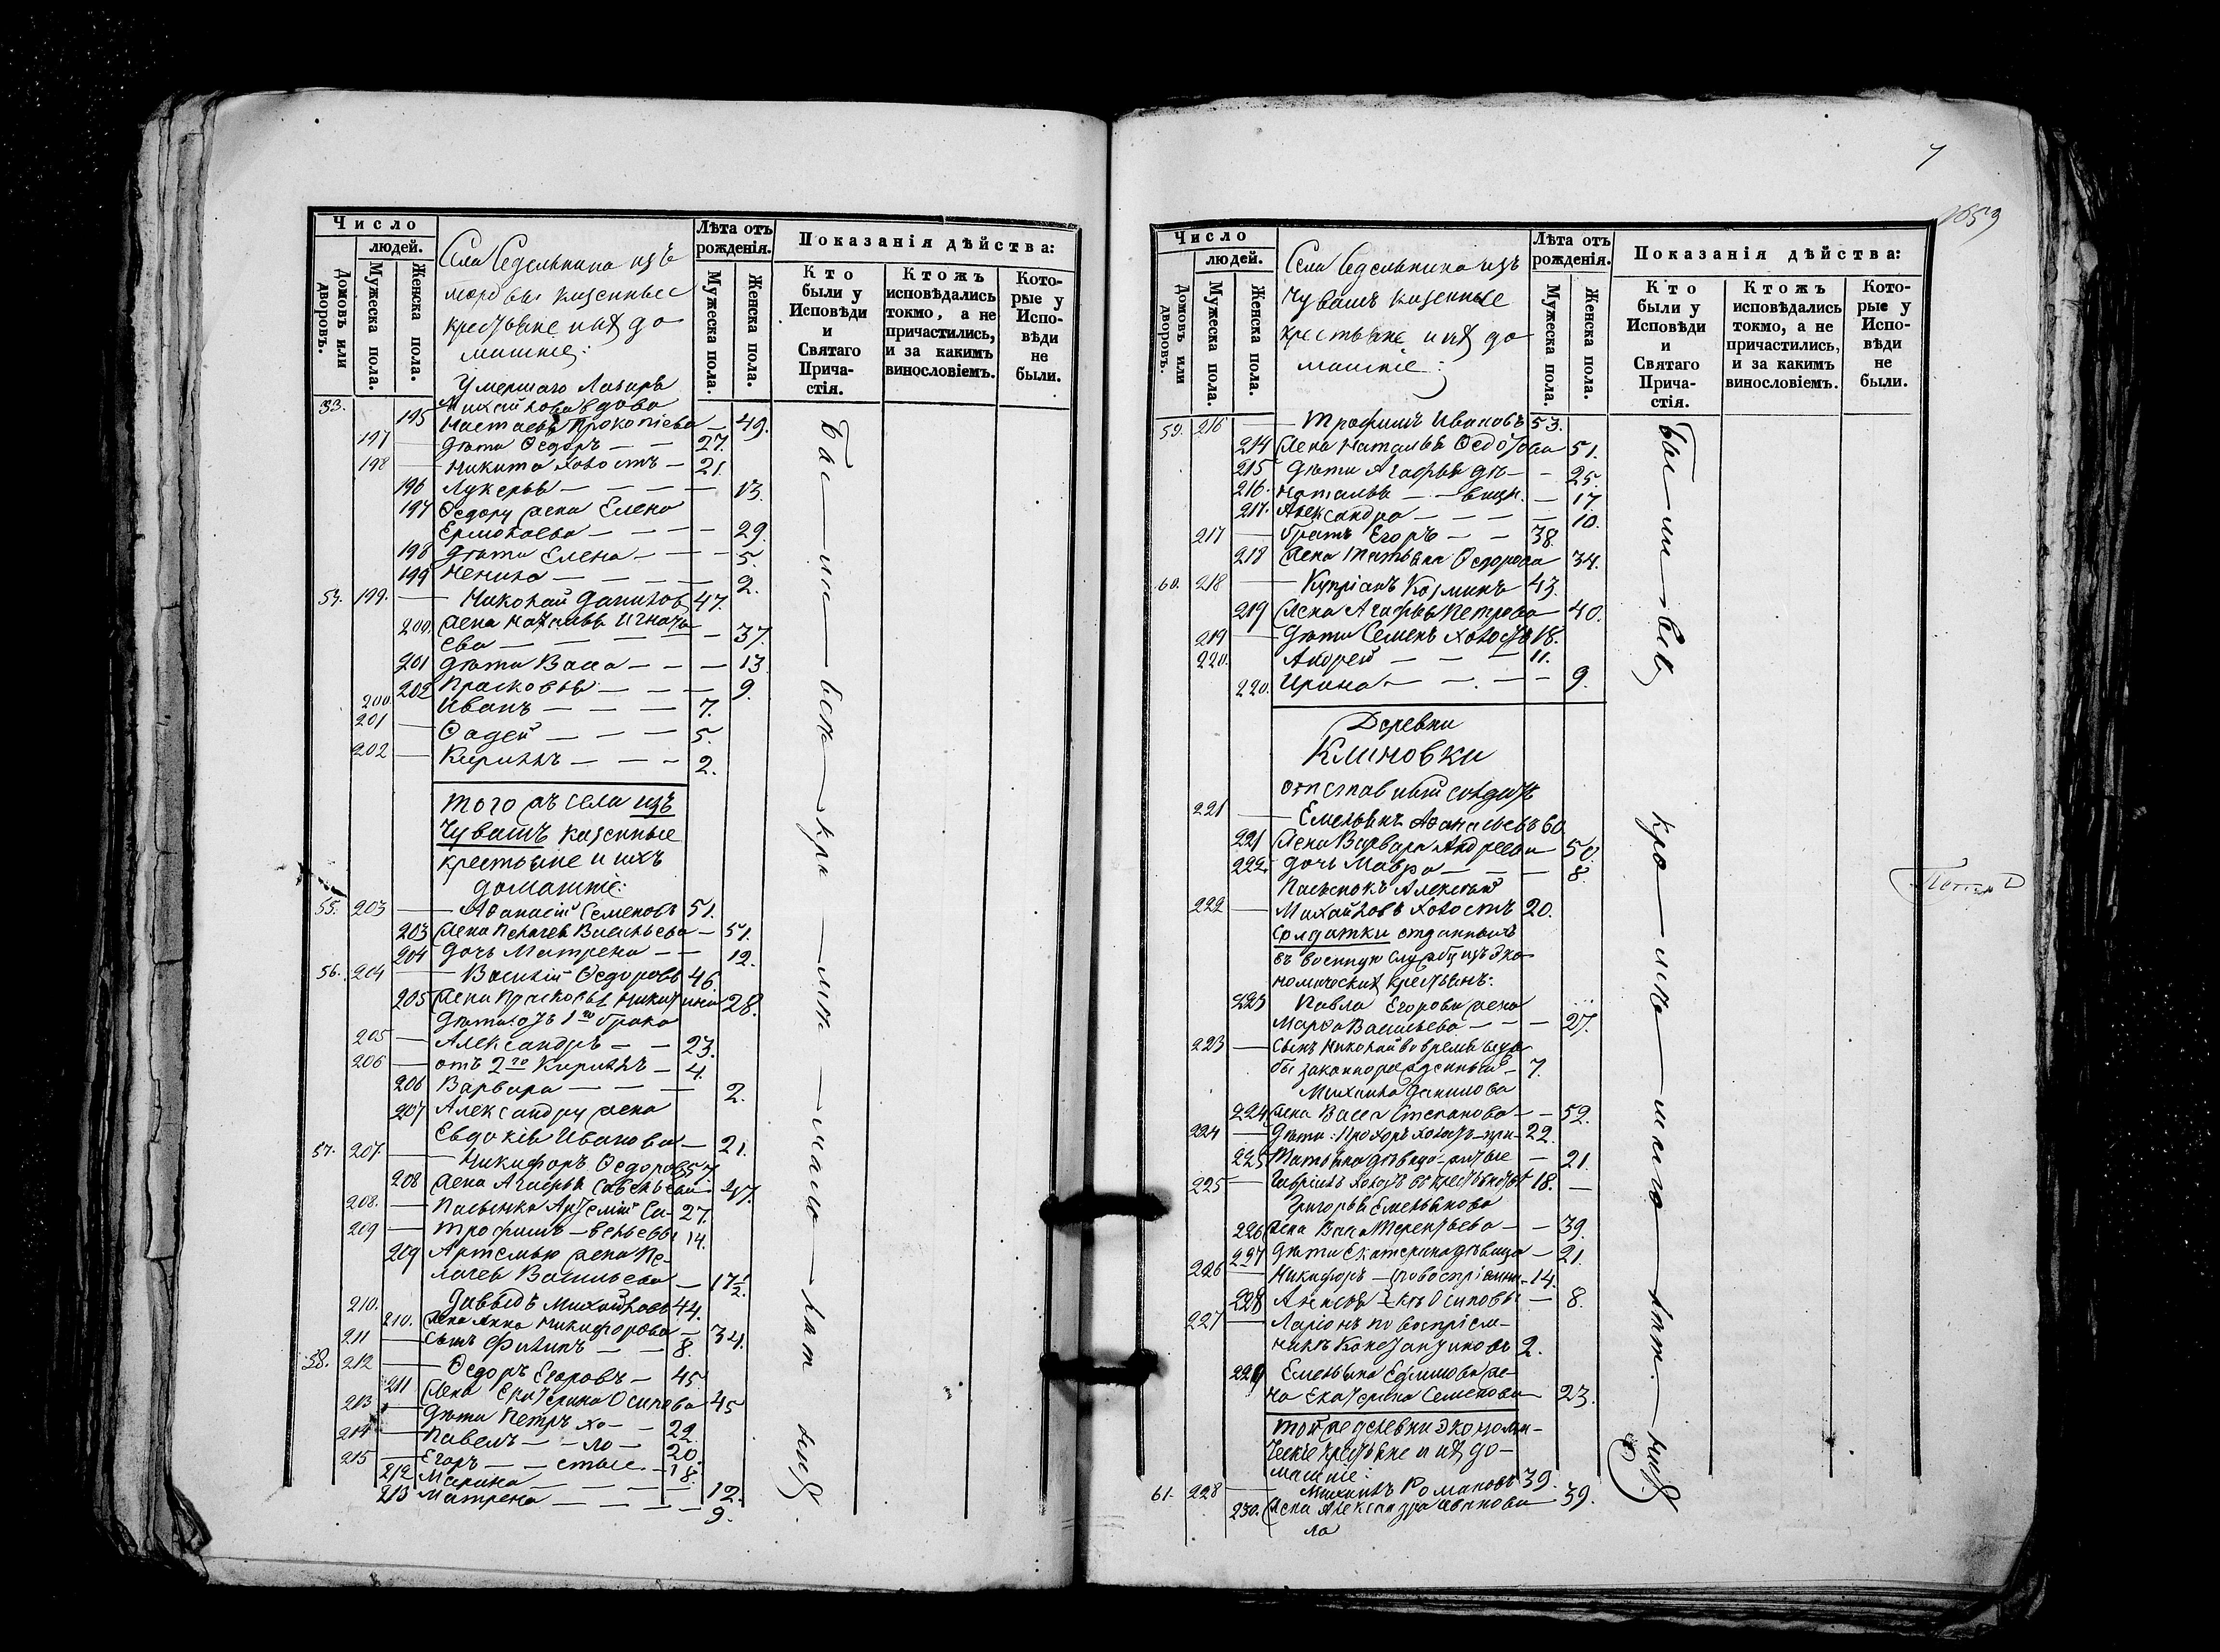 Число
людей.
Домовъ или дворовъ.
Мужеска пола.
Женска пола.
Села Седелькина изъ
мордвы казенные
крестьяне и ихъ до
машніе:
Лѣта отъ рожденія.
Мужеска пола.
Женска пола.
Показанія дѣйства:
Кто были у Исповѣди и Святаго Прича-стія.
Ктожъ исповѣдались токмо, а не причастились, и за какимъ винословіемъ.
Кото-рые у Испо-вѣди не были.
Умершаго Лазаря
53. Михайлова вдова
195 Настасья Прокопіева — 49.
197 — дѣти Ѳедоръ — — 27.
198 — Никита холостъ — 21.
196 Лукерья — — — — 13.
197 Ѳедору жена Елена
Ермолаева — — — 29.
198 дѣти Елена — — — 5.
199 — — — — 2.
199. — Николай Даниловъ 47.
200. жена Наталья Игнать
ева — — — — 37.
201 дѣти Васса — — — 13
202 Прасковья — — — 9.
200 Иванъ — — — 7.
201 — Ѳадей — — — 5.
202 — Кирилъ — — — 2.
того жъ села изъ
Чувашъ казенные
крестьяне и ихъ
домашніе:
55. 203 — Аѳанасій Семеновъ 51.
203 жена Пелагея Васильева — 51.
204 дочь Матрена — — 12.
56. 204 — Василій Ѳедоровъ 46.
205 жена Прасковья Никитина 28.
дѣти: отъ 1го брака
205 — Александръ — — 23.
206 — отъ 2го Кирилъ — 4.
206 Варвара — — — 2.
207 Александру жена
Евдокія Иванова — 21.
57. 207. — Никифоръ Ѳедоровъ 57
208 жена Агафья Савельева 47.
208. — Пасынки Артемій Са- 27.
209 — Трофимъ — вельевы 14.
209 Артемью жена Пе-
лагея Васильева — 17½.
210. Давыдъ Михайловъ 44.
210. жена Анна Никифорова — 34.
211 — сынъ Филипъ — — 8.
58. 212 — Ѳедоръ Егоровъ — 45
211 жена Екатерина Осипова 45
213 — дѣти Петръ хо- — 22.
214 — Павелъ — — ло — 20.
215 — Егоръ — — стые. — 18.
212 Марина — — — — 12.
213 Матрена — — — — 9.
Бы — ли — всѣ — кро — мѣ — мало — лѣт нихъ
7
1059
Число
людей.
Домовъ или дворовъ.
Мужеска пола.
Женска пола.
Села Седелькина изъ
Чувашъ казенные
крестьяне и ихъ до
машніе:
Лѣта отъ рожденія.
Мужеска пола.
Женска пола.
Показанія дѣйства:
Кто были у Исповѣди и Святаго Прича-стія.
Ктожъ исповѣдались токмо, а не причастились, и за какимъ винословіемъ.
Кото-рые у Испо-вѣди не были.
59. 216 — Трофимъ Ивановъ 53.
214 жена Наталья Ѳедотова 51.
215 дѣти Агафья дѣ- — 25.
216. Наталья — — вицы. — 17.
217. Александра — — — — 10.
217 — братъ Егоръ — — 38.
218 жена Татьяна Ѳедорова 34.
60. 218 — Купріанъ Козминъ 43.
219 жена Агафья Петрова 40.
219 — дѣти Семенъ холостъ 18.
220. Андрей — — — 11.
220. Ирина — — — — 9.
Деревни
Клиновки
отставный солдатъ
221 — Емельянъ Аѳанасьевъ 60.
221 жена Варвара Андреева — 50.
222. дочь Мавра — — — 8.
Пасынокъ Алексѣй
222 — Михайловъ холостъ 20.
Солдатки отданныхъ
въ военную службу изъ эко-
номическихъ крестьянъ:
223 Павла Егорова жена
Марѳа Васильева — — — 27.
223 — сынъ Николай во время служ
бы законнорожденный — 7.
Михаила Данилова
224 жена Васса Степанова — — 59.
224 — дѣти: Прохоръ холостъ 22.
225 Татьяна дѣвица — 21.
225 — Гавріилъ холостъ 18. —
Григорья Емельянова
226 жена Васса Терентьева — — 39.
227 дѣти Екатерина дѣвица — 21.
226 — Никифоръ — 14.
228 Осиповы — 8.
227 — Ларіонъ по воспріем-
никѣ Константиновъ 2.
229 Емельяна Ефимова же-
на Екатерина Семенова — 23.
той же деревни экономи-
ческіе крестьяне и ихъ до-
машніе:
61. 228 — Михаилъ Романовъ 39.
230. жена Александра Иванова 39.
Бы — ли — всѣ кро — мѣ — мало — лѣт — нихъ